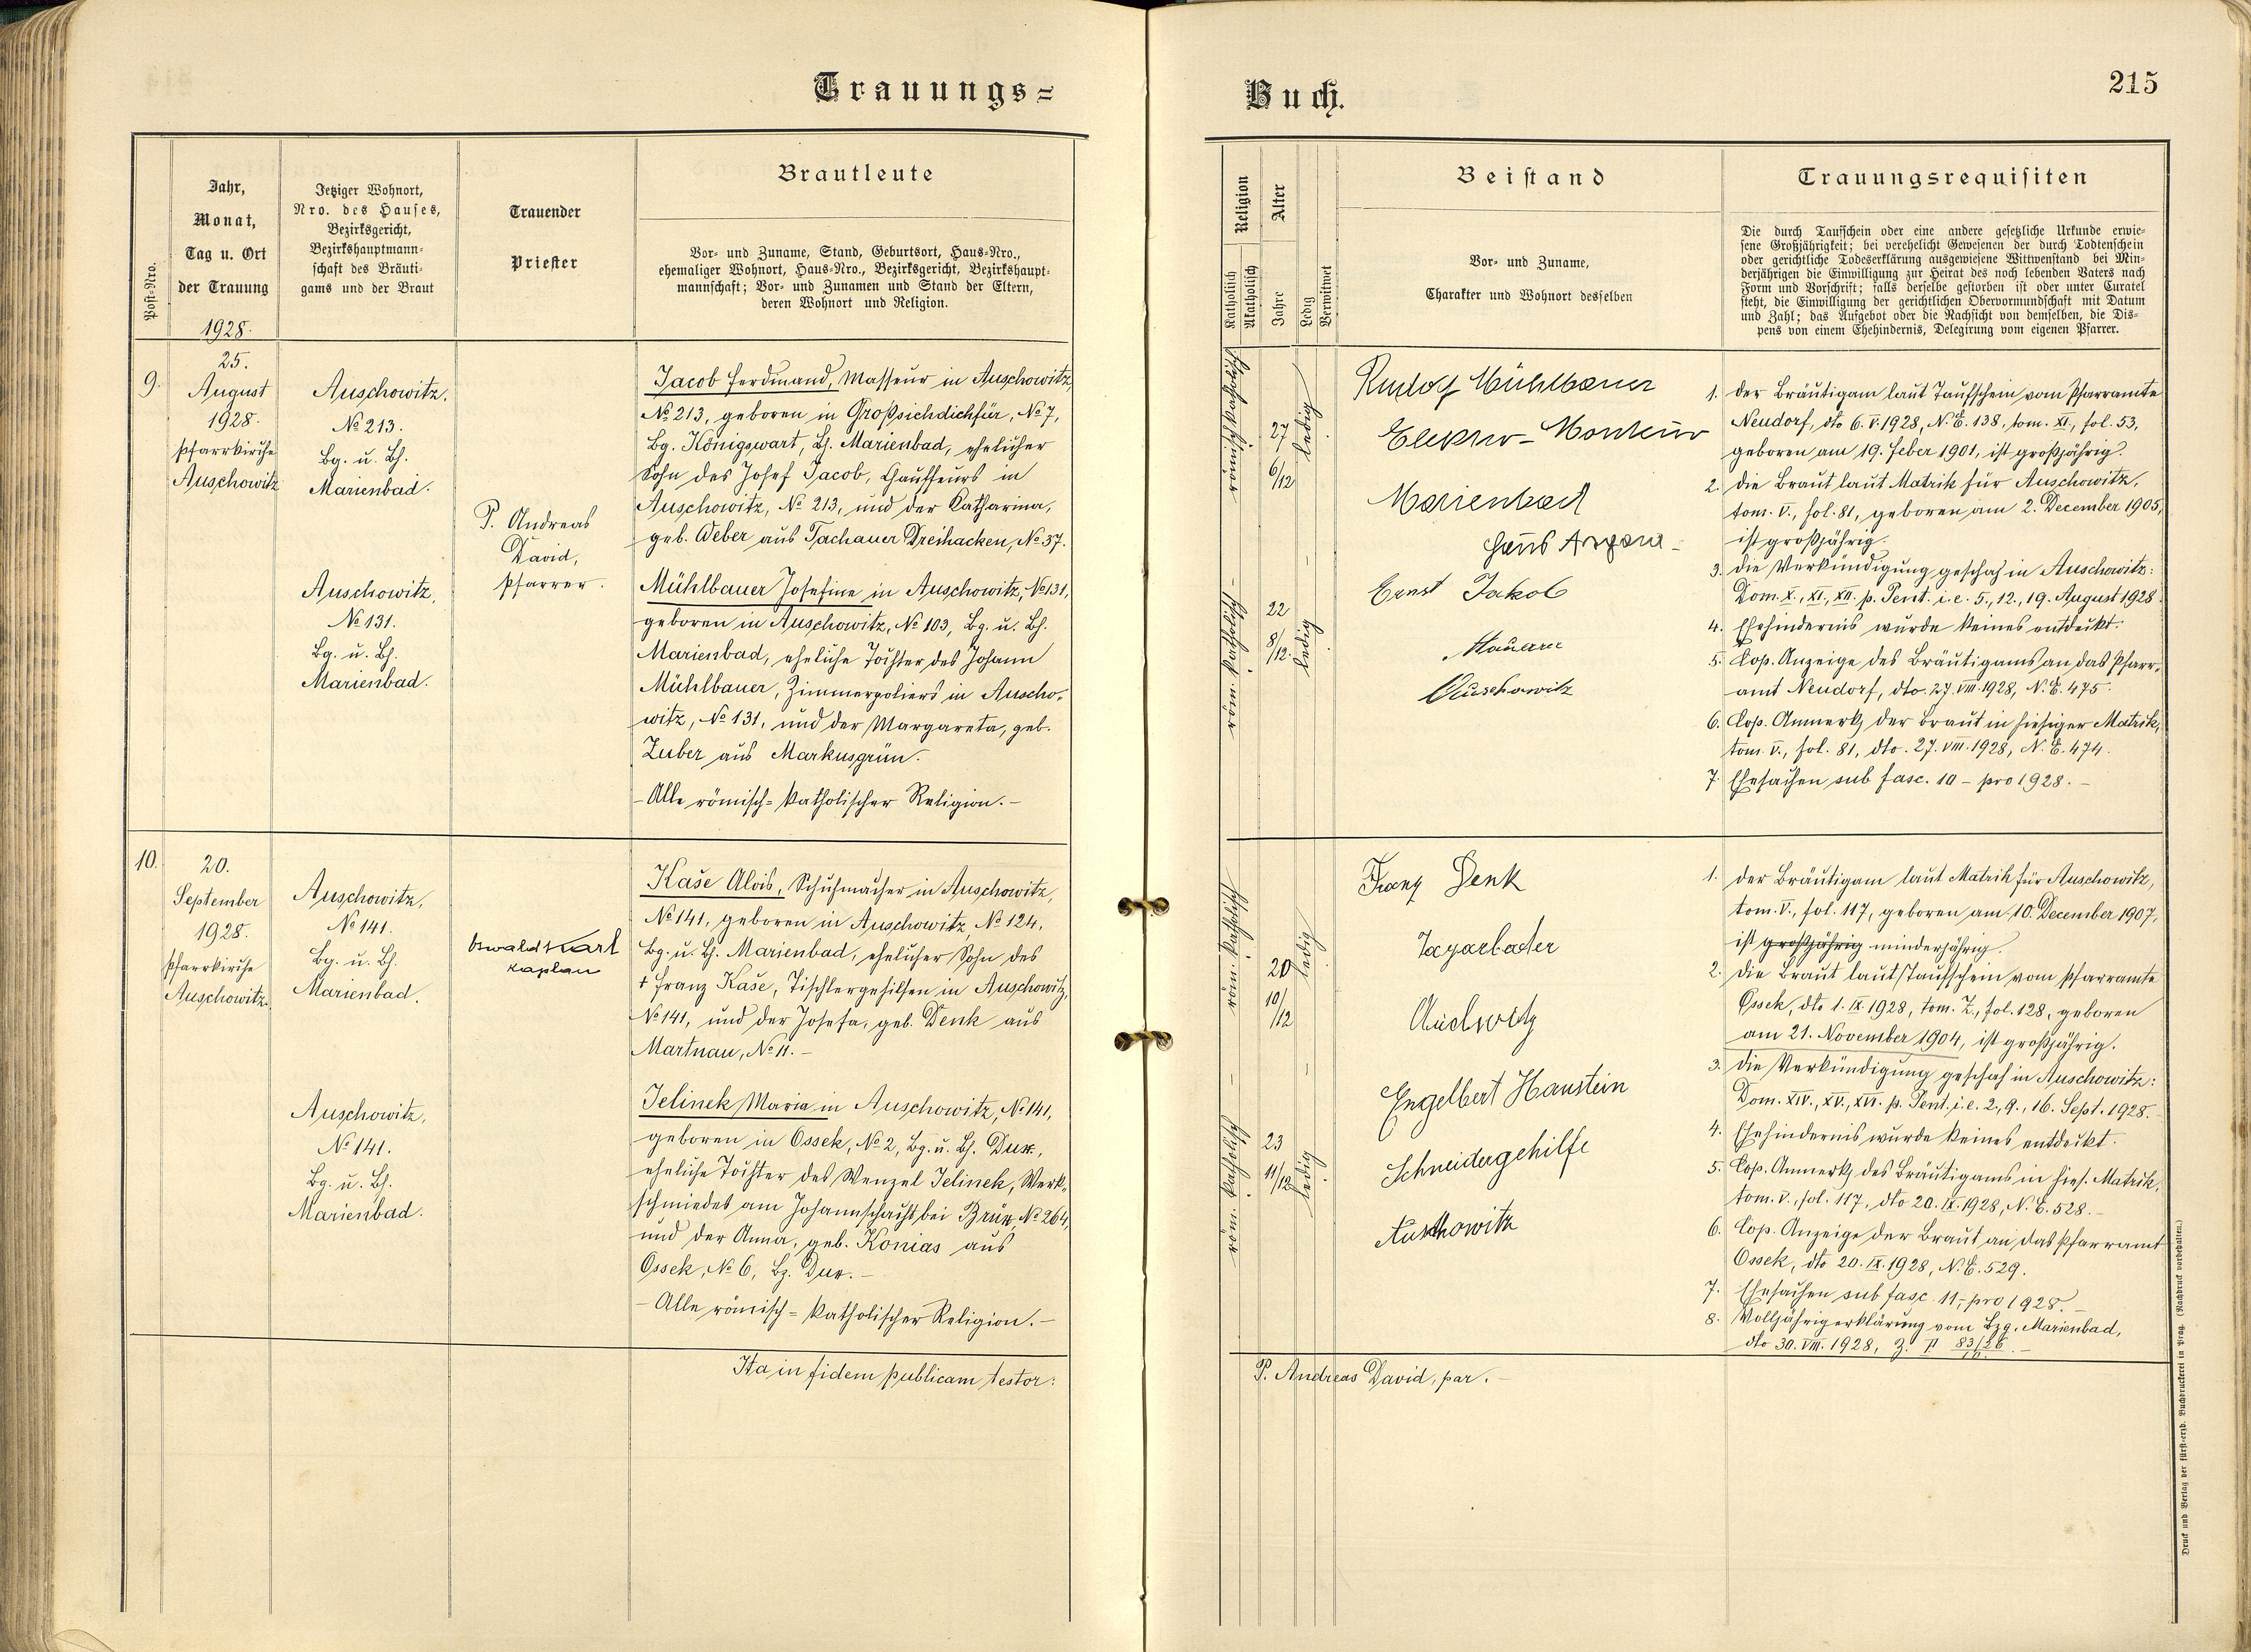 Trauungs=
Post-Nro.
Jahr,
Monat,
Tag u. Ort
der Trauung
1928.
Jetziger Wohnort,
Nro. des Hauses,
Bezirksgericht,
Bezirkshauptmann-
schaft des Bräuti-
gams und der Braut
Trauender
Priester
Brautleute
Vor- und Zuname, Stand, Geburtsort, Haus-Nro.,
ehemaliger Wohnort, Haus-Nro., Bezirksgericht, Bezirkshaupt-
mannschaft; Vor- und Zunamen und Stand der Eltern,
deren Wohnort und Religion.
9.
25.
August
1928.
Pfarrkirche
Auschowitz
Auschowitz,
No 213.
Bg. u. Bh.
Marienbad.
Auschowitz,
No 131.
Bg. u. Bh.
Marienbad.
P. Andreas
David,
Pfarrer.
Jacob Ferdinand, Masseur in Auschowitz,
No 213, geboren in Großsichdichfür, No 7,
Bg. Königswart, Bh. Marienbad, ehelicher
Sohn des Josef Jacob, Chauffeurs in
Auschowitz, No 213, und der Katharina,
geb. Weber aus Tachauer Dreihacken, No 37.
Mühlbauer Josefine in Auschowitz, No 131,
geboren in Auschowitz, No 103, Bg. u. Bh.
Marienbad, eheliche Tochter des Johann
Mühlbauer, Zimmerpoliers in Auscho-
witz, No 131, und der Margareta, geb.
Zuber aus Markusgrün.
- Alle römisch=katholischer Religion. -
10.
20.
September
1928.
Pfarrkirche
Auschowitz.
Auschowitz,
No 141.
Bg. u. Bh.
Marienbad.
Auschowitz,
No 141.
Bg. u. Bh.
Marienbad.
Oswald Karl
Kaplan
Kaše Alois, Schuhmacher in Auschowitz,
No 141, geboren in Auschowitz, No 124,
Bg. u. Bh. Marienbad, ehelicher Sohn des
† Franz Kaše, Tischlergehilfen in Auschowitz,
No 141, und der Josefa, geb. Denk aus
Martnau, No 11. -
Jelinek Maria in Auschowitz, No 141,
geboren in Ossek, No 2, Bg. u. Bh. Dux,
eheliche Tochter des Wenzel Jelinek, Werk-
schmiedes am Johannschacht bei Brüx, No 264,
und der Anna, geb. Konias aus
Ossek, No 6, Bz. Dux. -
- Alle römisch=katholischer Religion. -
Ita in fidem publicam testor:
Buch.
215
Religion
Katholisch
Akatholisch
Alter
Jahre
Ledig
Verwitwet
Beistand
Vor- und Zuname,
Charakter und Wohnort desselben
Trauungsrequisiten
Die durch Taufschein oder eine andere gesetzliche Urkunde erwie-
sene Großjährigkeit; bei verehelicht Gewesenen der durch Todtenschein
oder gerichtliche Todeserklärung ausgewiesene Wittwenstand bei Min-
derjährigen die Einwilligung zur Heirat des noch lebenden Vaters nach
Form und Vorschrift; falls derselbe gestorben ist oder unter Curatel
steht, die Einwilligung der gerichtlichen Obervormundschaft mit Datum
und Zahl; das Aufgebot oder die Nachsicht von demselben, die Dis-
pens von einem Ehehindernis, Delegirung vom eigenen Pfarrer.
römisch katholisch
27
6/12
ledig
röm. katholisch
22
8/12.
ledig
Rudolf Mühlbauer
Elektro-Monteur
Marienbad
Ernst Jakob
Maurer
Auschowitz
1. der Bräutigam laut Taufschein vom Pfarramte
Neudorf, dto 6.V.1928, N.E. 138, tom. XI., fol. 53,
geboren am 19. Feber 1901, ist großjährig.
2. die Braut laut Matrik für Auschowitz,
tom. V., fol. 81, geboren am 2. December 1905,
ist großjährig.
3. die Verkündigung geschah in Auschowitz:
Dom. X., XI., XII. p. Pent. i.e. 5., 12., 19. August 1928.
4. Ehehindernis wurde keines entdeckt.
5. Cop. Anzeige des Bräutigams an das Pfarr-
amt Neudorf, dto. 27.VIII.1928, N.E. 475.
6. Cop. Anmerk. der Braut in hiesiger Matrik,
tom. V., fol. 81, dto. 27.VIII.1928, N.E. 474.
7. Ehesachen sub fasc. 10 - pro 1928. -
röm. katholisch
20
10/12
ledig
röm. katholisch
23
11/12
ledig
Franz Denk
Auschwitz
Engelbert Hanstein
Schneidergehilfe
Auschowitz
1. der Bräutigam laut Matrik für Auschowitz,
tom. V., fol. 117, geboren am 10. December 1907,
ist großjährig minderjährig.
2. die Braut laut Taufschein vom Pfarramte
Ossek, dto 1.IX.1928, tom. Z., fol. 128, geboren
am 21. November 1904, ist großjährig.
3. die Verkündigung geschah in Auschowitz:
Dom. XIV., XV., XVI. p. Pent. i.e. 2., 9., 16. Sept. 1928. -
4. Ehehindernis wurde keines entdeckt.
5. Cop. Anmerk. des Bräutigams in hies. Matrik,
tom. V., fol. 117, dto 20.IX.1928, N.E. 528. -
6. Cop. Anzeige der Braut an das Pfarramt
Ossek, dto 20.IX.1928, N.E. 529.
7. Ehesachen sub fasc. 11,- pro 1928. -
8. Volljährigerklärung vom Bzg. Marienbad,
dto 30.VIII.1928, Z. P 83/26
P. Andreas David, par. -
Druck und Verlag der fürst-erzb. Buchdruckerei in Prag. (Nachdruck vorbehalten.)